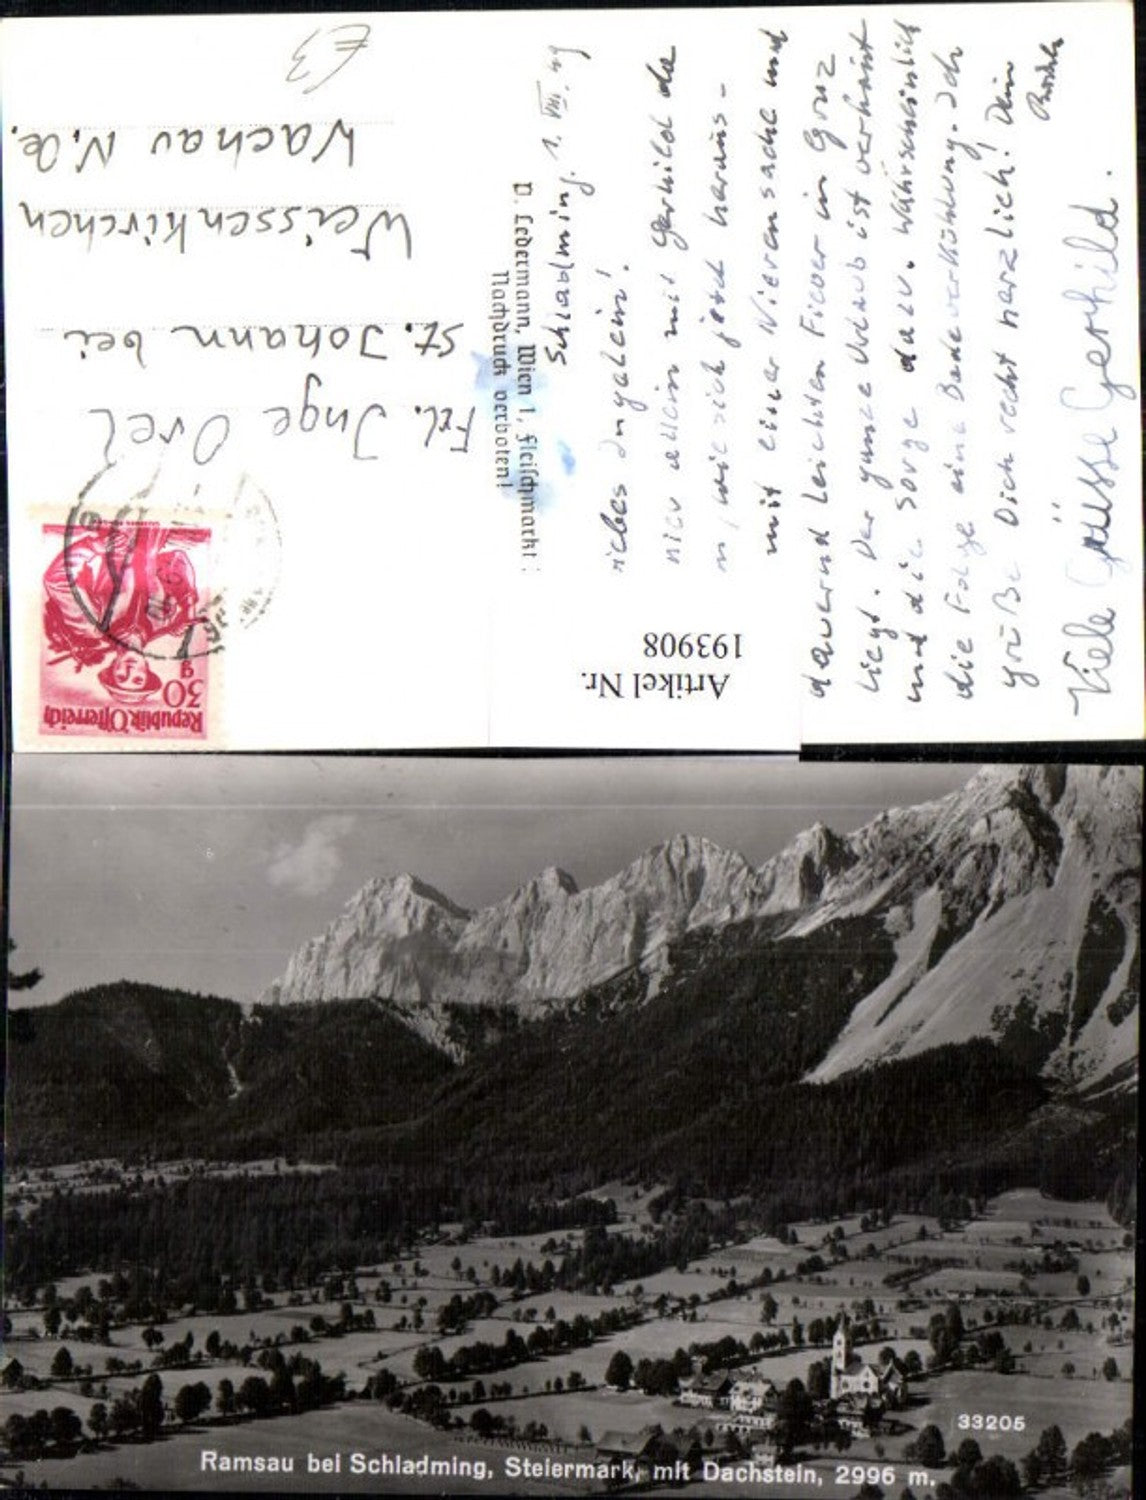 Schladming. 1. VIII. 49
Liebes Ingelein!
allein mit Gerhild da
sich jetzt heraus-
mit einer Nierensache und
dauernd leichten Fieber in Graz
liegt. Der ganze Urlaub ist verhaut
und die Sorge dazu. Wahrscheinlich
die Folge einer Badeverkühlung. Ich
grüße Dich recht herzlich! Dein
Viele Grüsse Gerhild.
A. Ledermann, Wien 1, Fleischmarkt
Nachdruck verboten!
Republik Österreich
30
g
Frl. Inge Ovel
St. Johann bei
Weissenkirchen
Wachau N.Oe.
€3
Artikel Nr.
193908
33205
Ramsau bei Schladming, Steiermark, mit Dachstein, 2996 m.